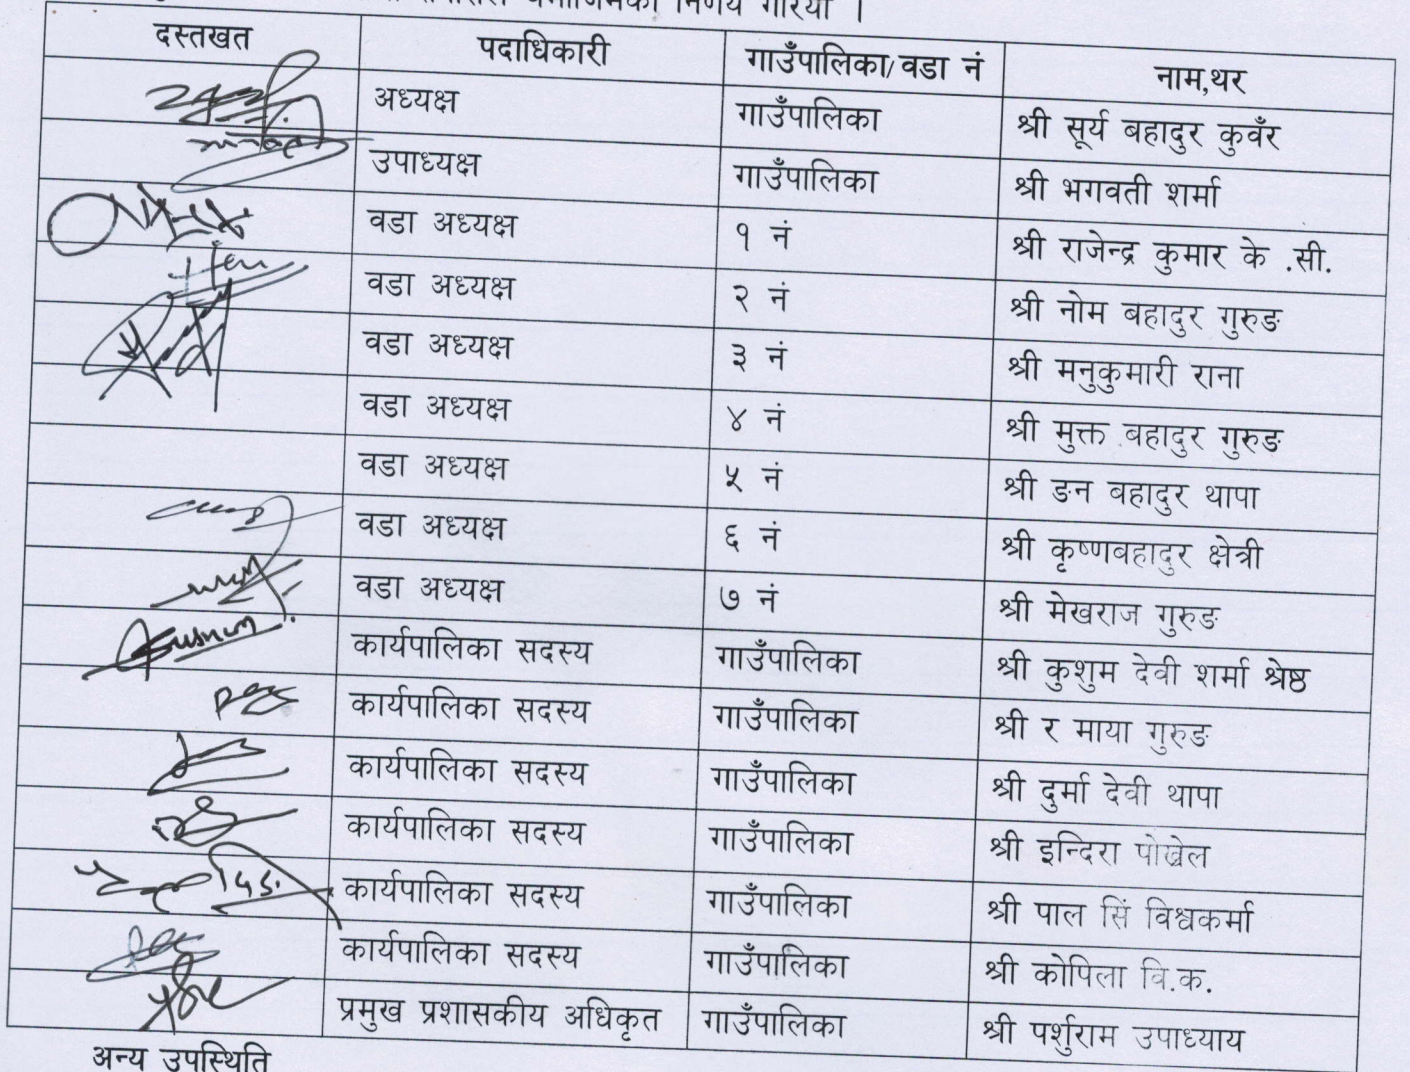 निर्णय गरियो ।
दस्तखत पदाधिकारी गाउँपालिका/वडा नं नाम,थर
अध्यक्ष गाउँपालिका श्री सूर्य बहादुर कुवँर
उपाध्यक्ष गाउँपालिका श्री भगवती शर्मा
वडा अध्यक्ष १ नं श्री राजेन्द्र कुमार के .सी.
वडा अध्यक्ष २ नं श्री नोम बहादुर गुरुङ
वडा अध्यक्ष ३ नं श्री मनुकुमारी राना
वडा अध्यक्ष ४ नं श्री मुक्त बहादुर गुरुङ
वडा अध्यक्ष ५ नं श्री ङन बहादुर थापा
वडा अध्यक्ष ६ नं श्री कृष्णबहादुर क्षेत्री
वडा अध्यक्ष ७ नं श्री मेखराज गुरुङ
कार्यपालिका सदस्य गाउँपालिका श्री कुशुम देवी शर्मा श्रेष्ठ
कार्यपालिका सदस्य गाउँपालिका श्री र माया गुरुङ
कार्यपालिका सदस्य गाउँपालिका श्री दुर्मा देवी थापा
कार्यपालिका सदस्य गाउँपालिका श्री इन्दिरा पोखेल
कार्यपालिका सदस्य गाउँपालिका श्री पाल सिं विश्वकर्मा
कार्यपालिका सदस्य गाउँपालिका श्री कोपिला वि.क.
प्रमुख प्रशासकीय अधिकृत गाउँपालिका श्री पर्शुराम उपाध्याय
अन्य उपस्थिति